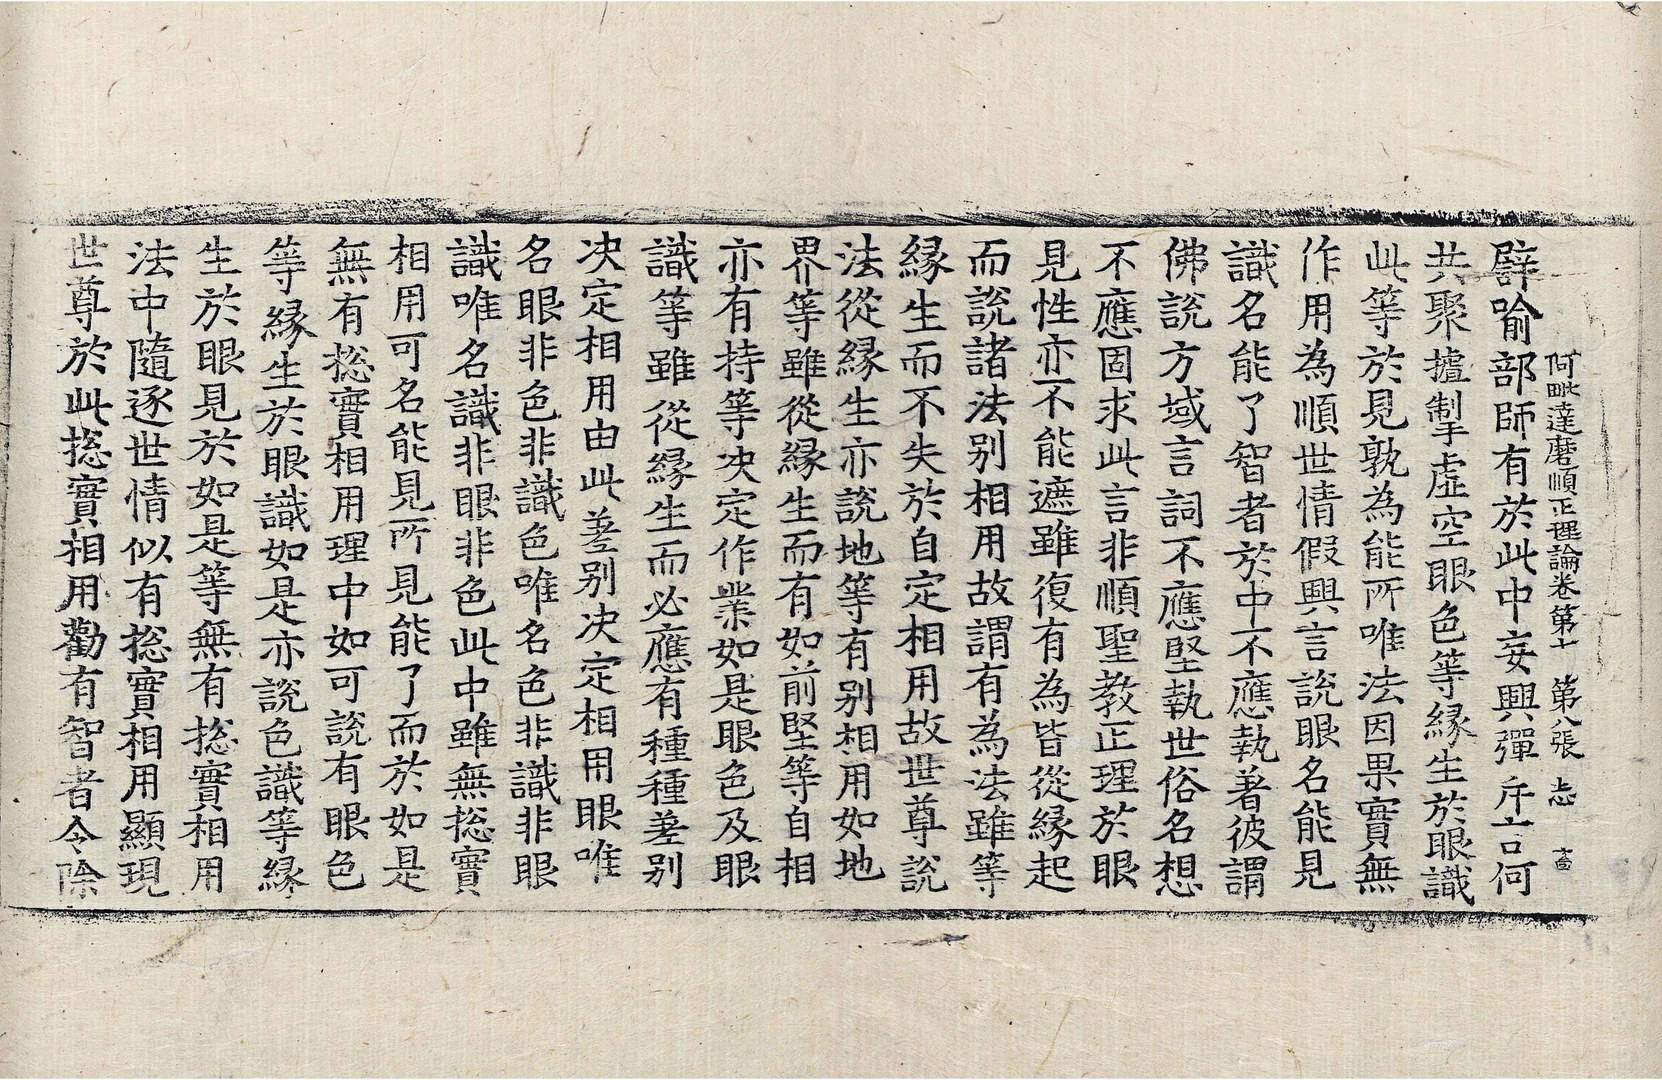 阿毗達磨順正理論卷第七 第八張 志
譬喻部師有於此中妄興彈斥言何
共聚攎掣虛空眼色等緣生於眼識
此等於見孰為能所唯法因果實無
作用為順世情假興言說眼名能見
識名能了智者於中不應執著彼謂
佛說方域言詞不應堅執世俗名想
不應固求此言非順聖教正理於眼
見性亦不能遮雖復有為皆從緣起
而說諸法別相用故謂有為法雖等
緣生而不失於自定相用故世尊說
法從緣生亦說地等有別相用如地
界等雖從緣生而有如前堅等自相
亦有持等决定作業如是眼色及眼
識等雖從緣生而必應有種種差別
决定相用由此差別决定相用眼唯
名眼非色非識色唯名色非識非眼
識唯名識非眼非色此中雖無捴實
相用可名能見所見能了而於如是
無有捴實相用理中如可說有眼色
等緣生於眼識如是亦說色識等緣
生於眼見於如是等無有捴實相用
法中隨逐世情似有捴實相用顯現
世尊於此捴實相用勸有智者令除